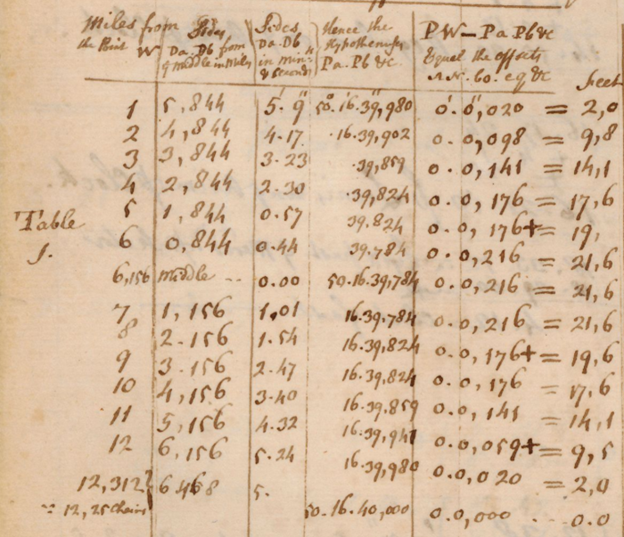 Miles from the Point W | Sides Da. Db from middle in Miles | Sides Da. Db in min. & seconds | Hence the Hypothenuses Pa. Pb &c. | PW — Pa Pb &c Equal the offsets &c | feet
1 5,844 5. 9 50.16.39,980 0. 0,020 = 2,0
2 4,844 4.17 .16.39,902 0. 0,098 = 9,8
3 3,844 3.23 .39,859 0. 0,141 = 14,1
4 2,844 2.30 .39,824 0. 0,176 = 17,6
5 1,844 0.57 39.824 0. 0,176+ = 19,
6 0,844 0.44 39.784 0. 0,216 = 21,6
6,156 Middle -- 0.00 50.16.39,784 0. 0,216 = 21,6
7, 1,156 1,01 16.39.784 0. 0,216 = 21,6
8 2.156 1.54 16.39,824 0. 0,176+ = 19,6
9 3.156 2.47 16.39,824 0. 0,176 = 17,6
10 4,156 3.40 16.39,859 0. 0,141 = 14,1
11 5,156 4.32 16.39,941 0. 0,059+ = 9,5
12 6,156 5.24 16.39,980 0. 0,020 = 2,0
12,312 6.468 5. 50.16.40,000 0. 0,000 --- 0.0
12,25 Chains
Table
1.